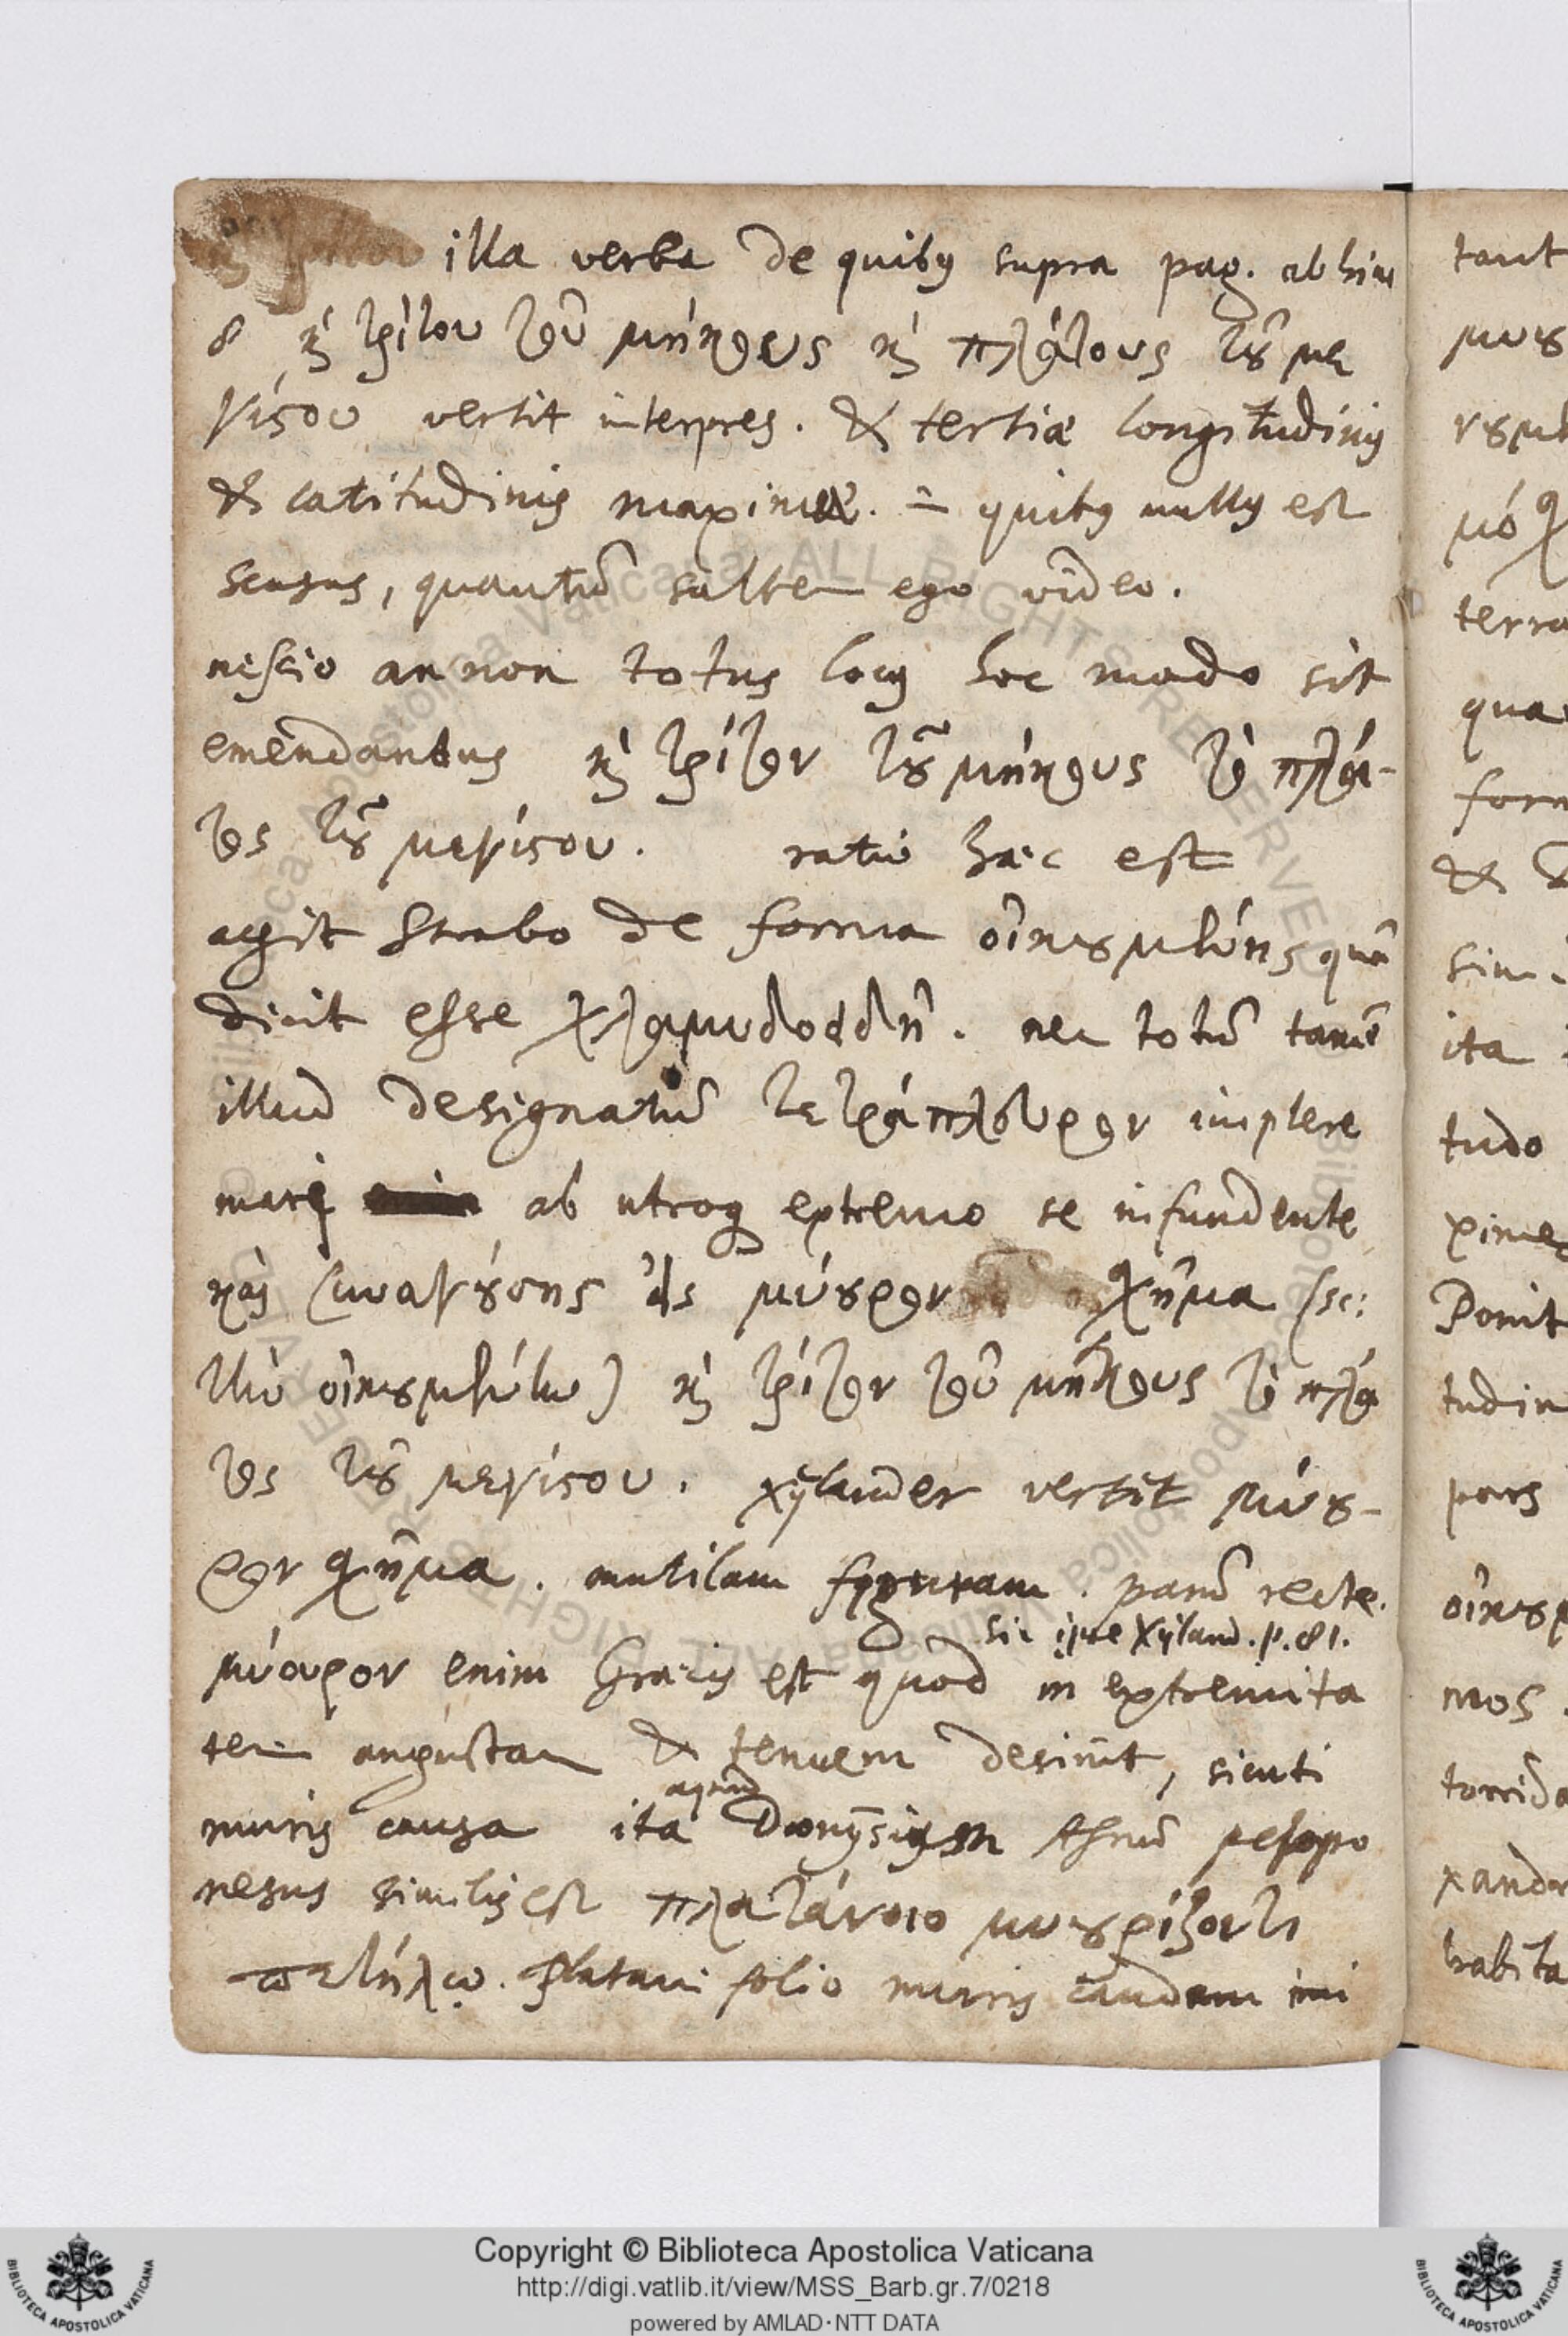 illa verba de quibus supra pag. abhinc
8 κὶ τρίτου τοῦ μήκους κὶ πλάτους τοῦ με
γίστου vertit interpres. & tertiæ longitudinis
& latitudinis maximæ. in quibus nullus est
sensus, quantū saltem ego video.
nescio an non totus locus hoc modo sit
emendandus κὶ τρίτον τοῦ μήκους τὸ πλά-
τος τοῦ μεγίστου. ratio hæc est
agit Strabo de forma οἰκουμένης quā
dicit esse χλαμυδοειδῆ. nec totū tamē
illud designatū τετράπλευρον implere
mari ab utroq extremo se infundente
καὶ συναγούσης εἰς μύουρον σχῆμα (sc:
τὴν οἰκουμένην) κὶ τρίτον τοῦ μήκους τὸ πλά
τος τοῦ μεγίστου. Xylander vertit μύου-
ρον σχῆμα. mutilam figuram. parū recte.
sic ipse Xyland. p. 81.
μύουρον enim Græcis est quod in extremita
tem angustam & tenuem desinit, sicuti
muris cauda ita apud Dionysium Afrum pelopo
nesus similis est πλατάνοιο μυουρίζοντι
πετήλῳ. Platani folio muris caudam imi
tant
μυου
μόσχ
terra
qua
form
&
sim
ita
tudo
xime
Ponit
tudin
pars
οἰκουμ
mos
torrida
xandr
habita
Copyright © Biblioteca Apostolica Vaticana
http://digi.vatlib.it/view/MSS_Barb.gr.7/0218
powered by AMLAD·NTT DATA